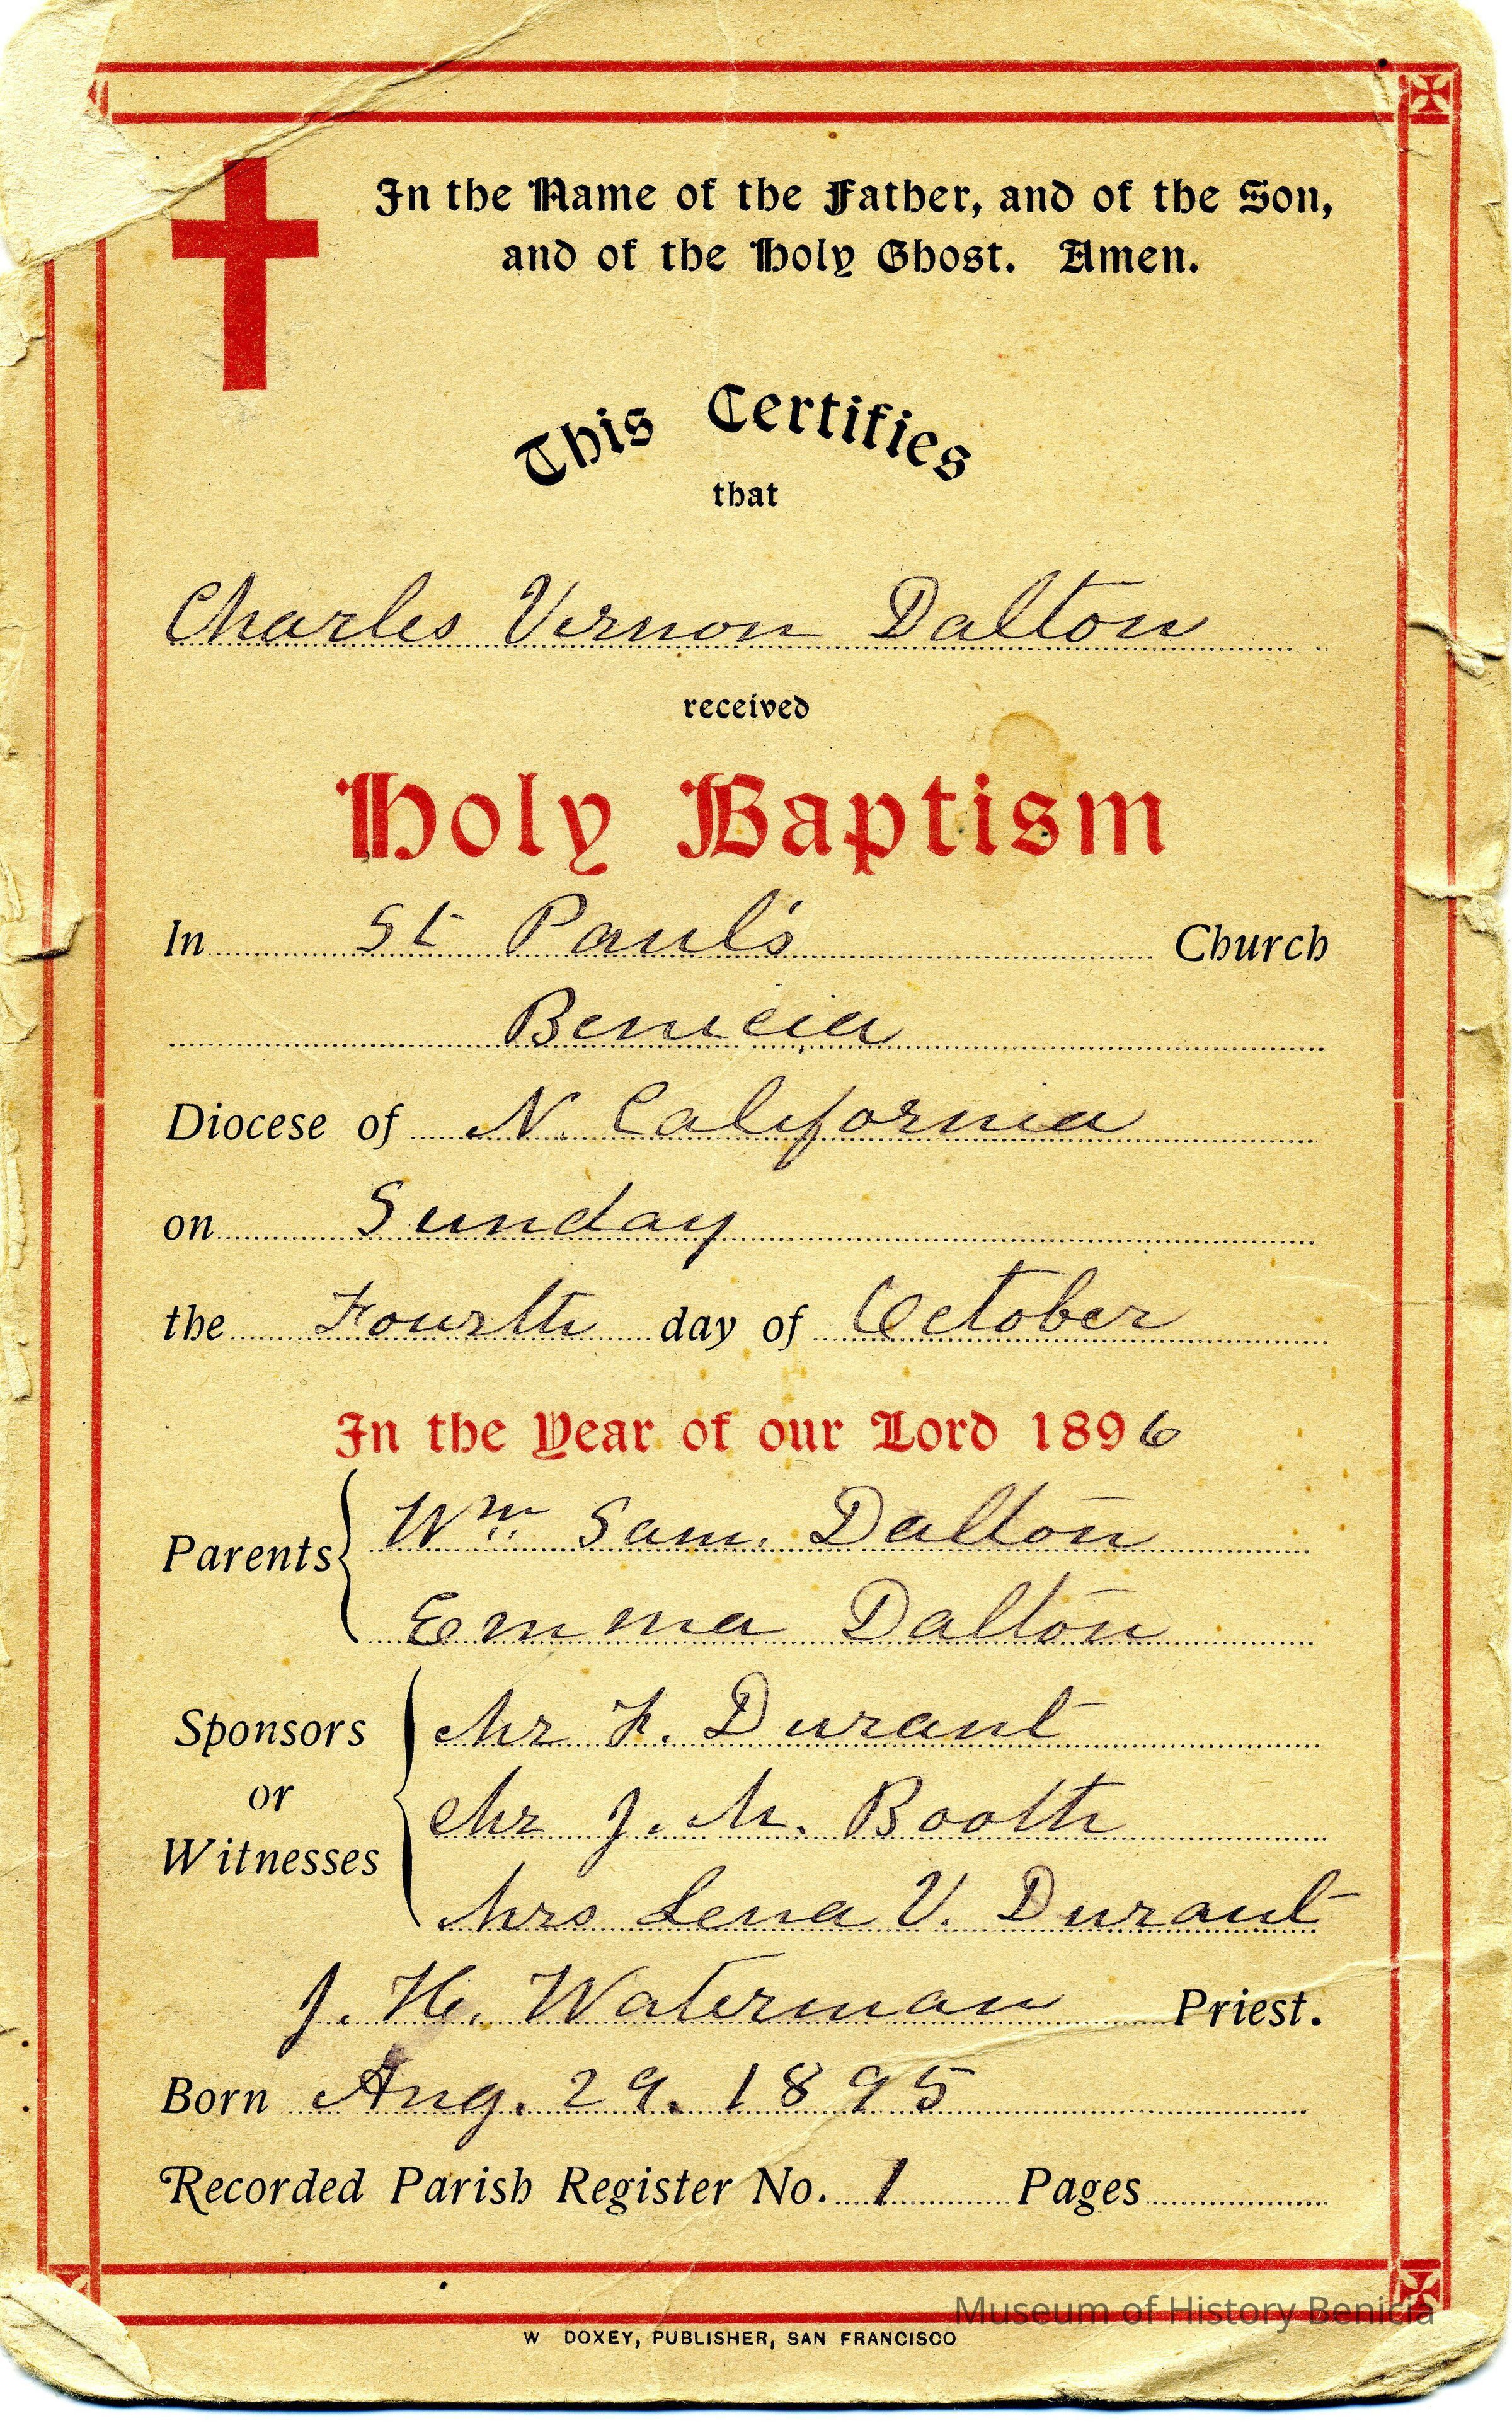 In the Name of the Father, and of the Son,
and of the Holy Ghost. Amen.
This Certifies
that
Charles Vernon Dalton
received
Holy Baptism
In St Paul's Church
Benicia
Diocese of N. California
on Sunday
the Fourth day of October
In the Year of our Lord 1896
Parents Wm Sam. Dalton
Emma Dalton
Sponsors or Witnesses Mr F. Durant
Mr J. M. Booth
Mrs Lena V. Durant
J. H. Waterman Priest.
Born Aug. 29. 1895
Recorded Parish Register No. 1 Pages
Museum of History Benicia
W DOXEY, PUBLISHER, SAN FRANCISCO